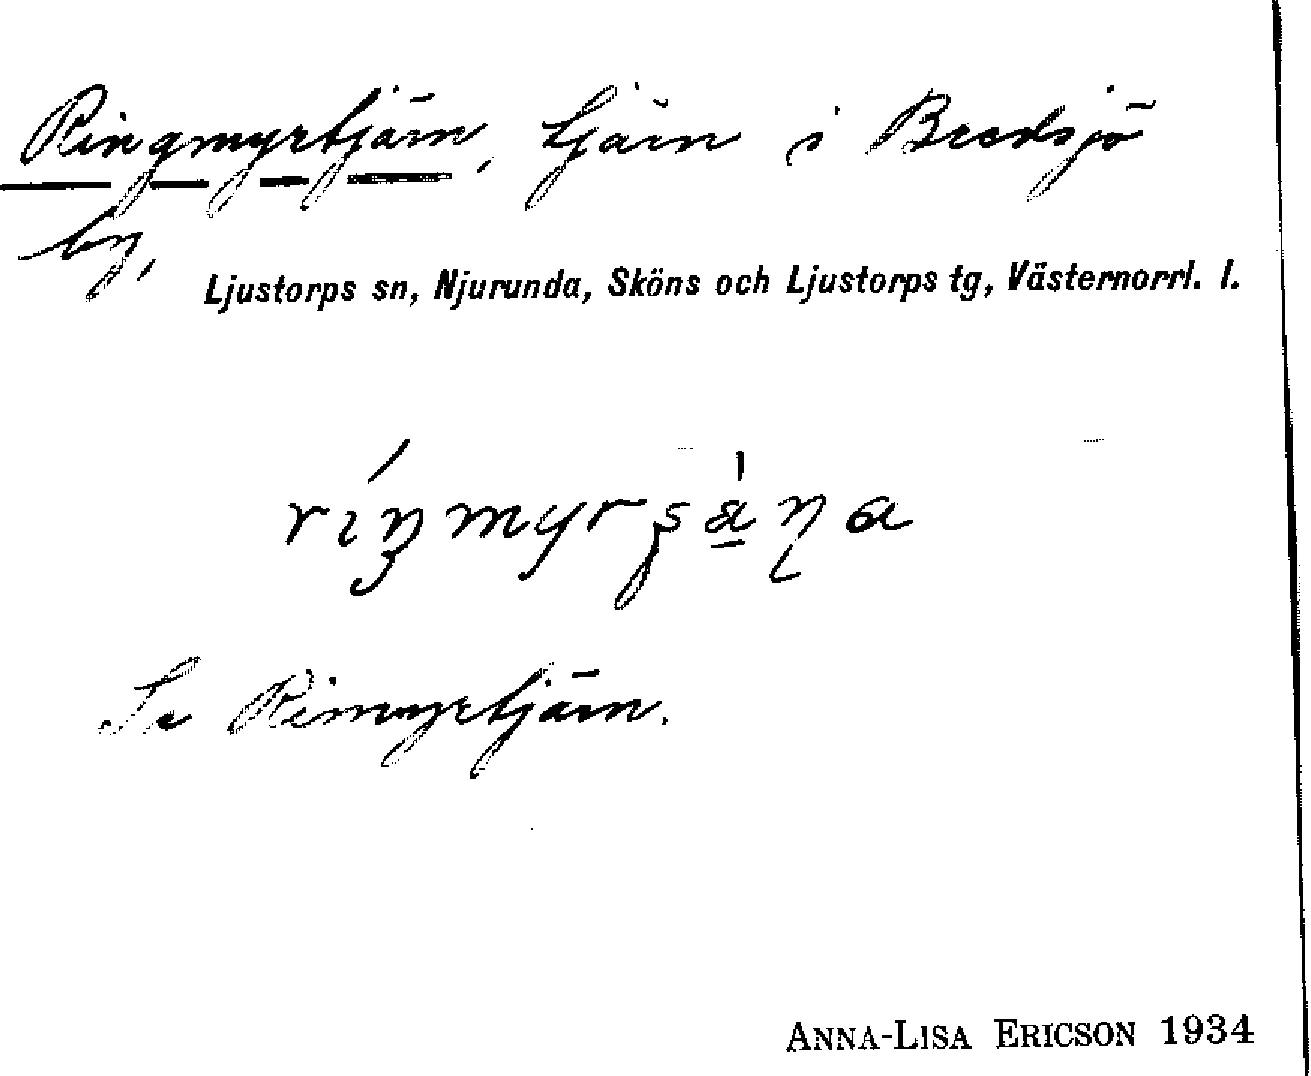 Ringmyrtjärn, tjärn i Bredsjö
by,
Ljustorps sn, Njurunda, Sköns och Ljustorps tg, Västernorrl. l.
Se Rimyrtjärn.
ANNA-LISA ERICSON 1934